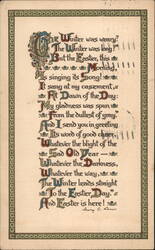 Our Winter was weary!
The Winter was long!
But the Easter, this
Morning,
Is singing its Song!
It sang at my casement,
At Dawn of the Day;
My gladness was spun
From the dullest of gray;
And I send you in greeting
Its word of good cheer,
Whatever the blight of the
Sad Old Year—
Whatever the Darkness,
Whatever the way,
The Winter leads straight
To the Easter Day,
And Easter is here!